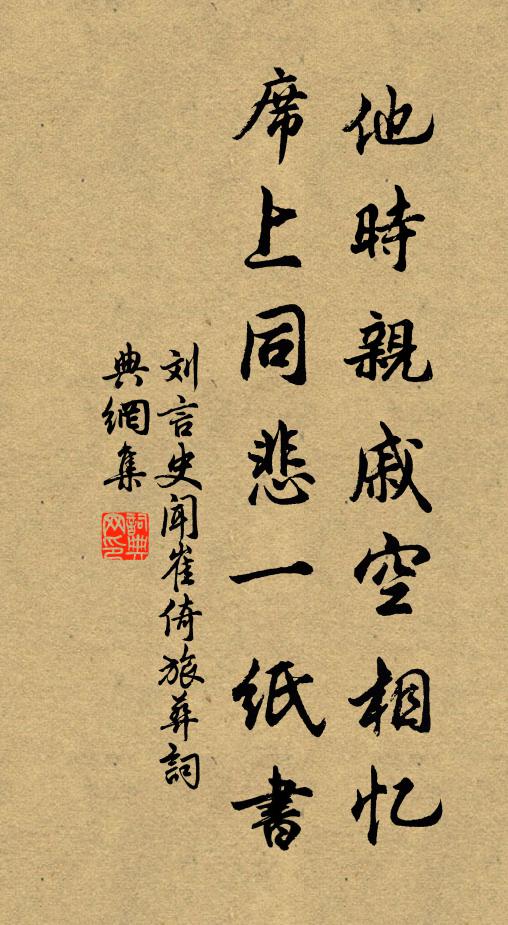 他時親戚空相忆
席上同悲一紙書
刘言史聞崔倚旅葬詞
典網集
詞典
网印